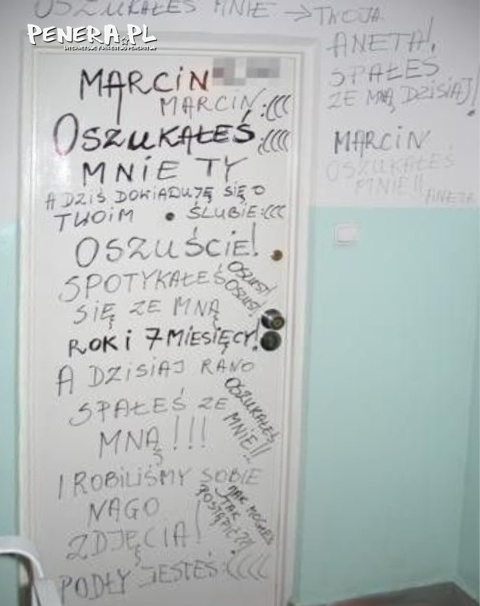 OSZUKAŁEŚ MNIE → TWOJA
ANETA!
SPAŁEŚ
ZE MNĄ DZISIAJ!
MARCIN
OSZUKAŁEŚ
MNIE!!
ANETA
PENERA.PL
MARCIN
MARCIN :(((
OSZUKAŁEŚ :((((
MNIE TY
A DZIŚ DOWIADUJĘ SIĘ O
TWOIM ŚLUBIE :(((
OSZUŚCIE!
SPOTYKAŁEŚ
SIĘ ZE MNĄ
ROK I 7 MIESIĘCY!
OSZUST!
OSZUST!
A DZISIAJ RANO
SPAŁEŚ ZE
MNĄ!!!
OSZUKAŁEŚ
MNIE!!
I ROBILIŚMY SOBIE
NAGO
ZDJĘCIA!
JAK MOGŁEŚ
TAK
POSTĄPIĆ?!
PODŁY JESTEŚ :((((